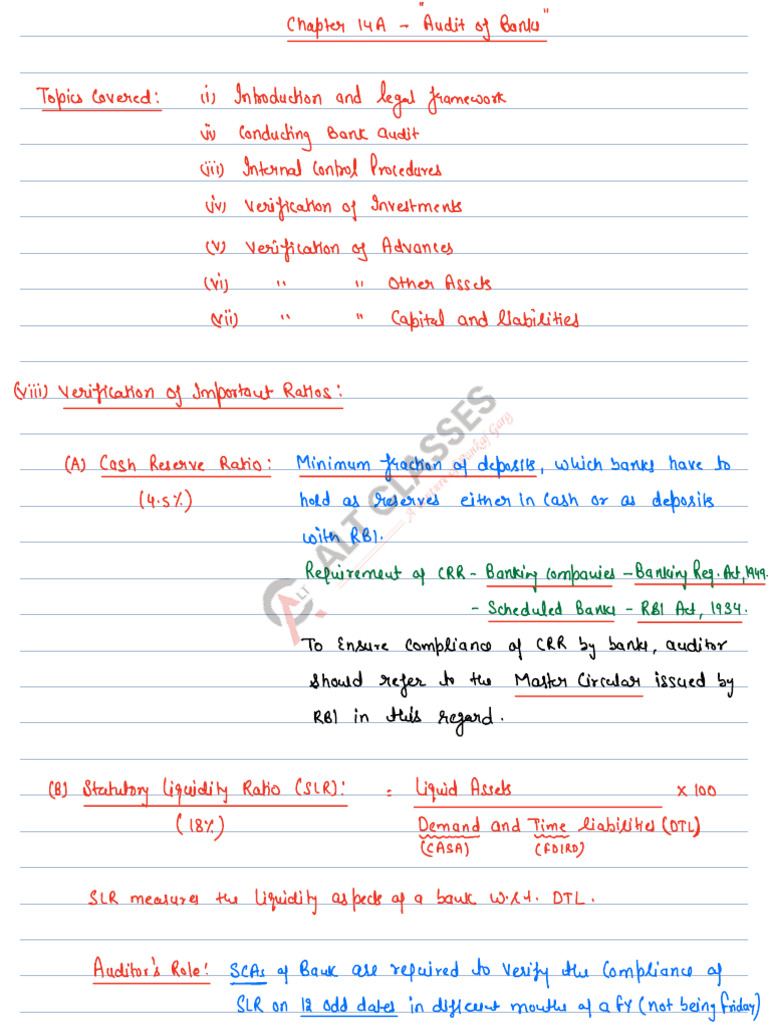 Chapter 14A - "Audit of Banks"
Topics Covered: (i) Introduction and legal framework
(ii) Conducting Bank Audit
(iii) Internal Control Procedures
(iv) Verification of Investments
(v) Verification of Advances
(vi) " " Other Assets
(vii) " " Capital and Liabilities
(viii) Verification of Important Ratios:
(A) Cash Reserve Ratio: Minimum fraction of deposits, which banks have to
(4.5%) hold as reserves either in cash or as deposits
with RBI.
Requirement of CRR - Banking Companies - Banking Reg. Act, 1949.
- Scheduled Banks - RBI Act, 1934.
To Ensure Compliance of CRR by banks, auditor
should refer to the Master Circular issued by
RBI in this regard.
(B) Statutory Liquidity Ratio (SLR): = Liquid Assets x 100
(18%) Demand and Time liabilities (DTL)
(CASA) (FD/RD)
SLR measures the liquidity aspects of a bank w.r.t. DTL.
Auditor's Role: SCAs of Bank are required to verify the Compliance of
SLR on 12 odd dates in different months of a FY (not being friday)
ALT CLASSES
A Venture of Pankaj Garg
ALT